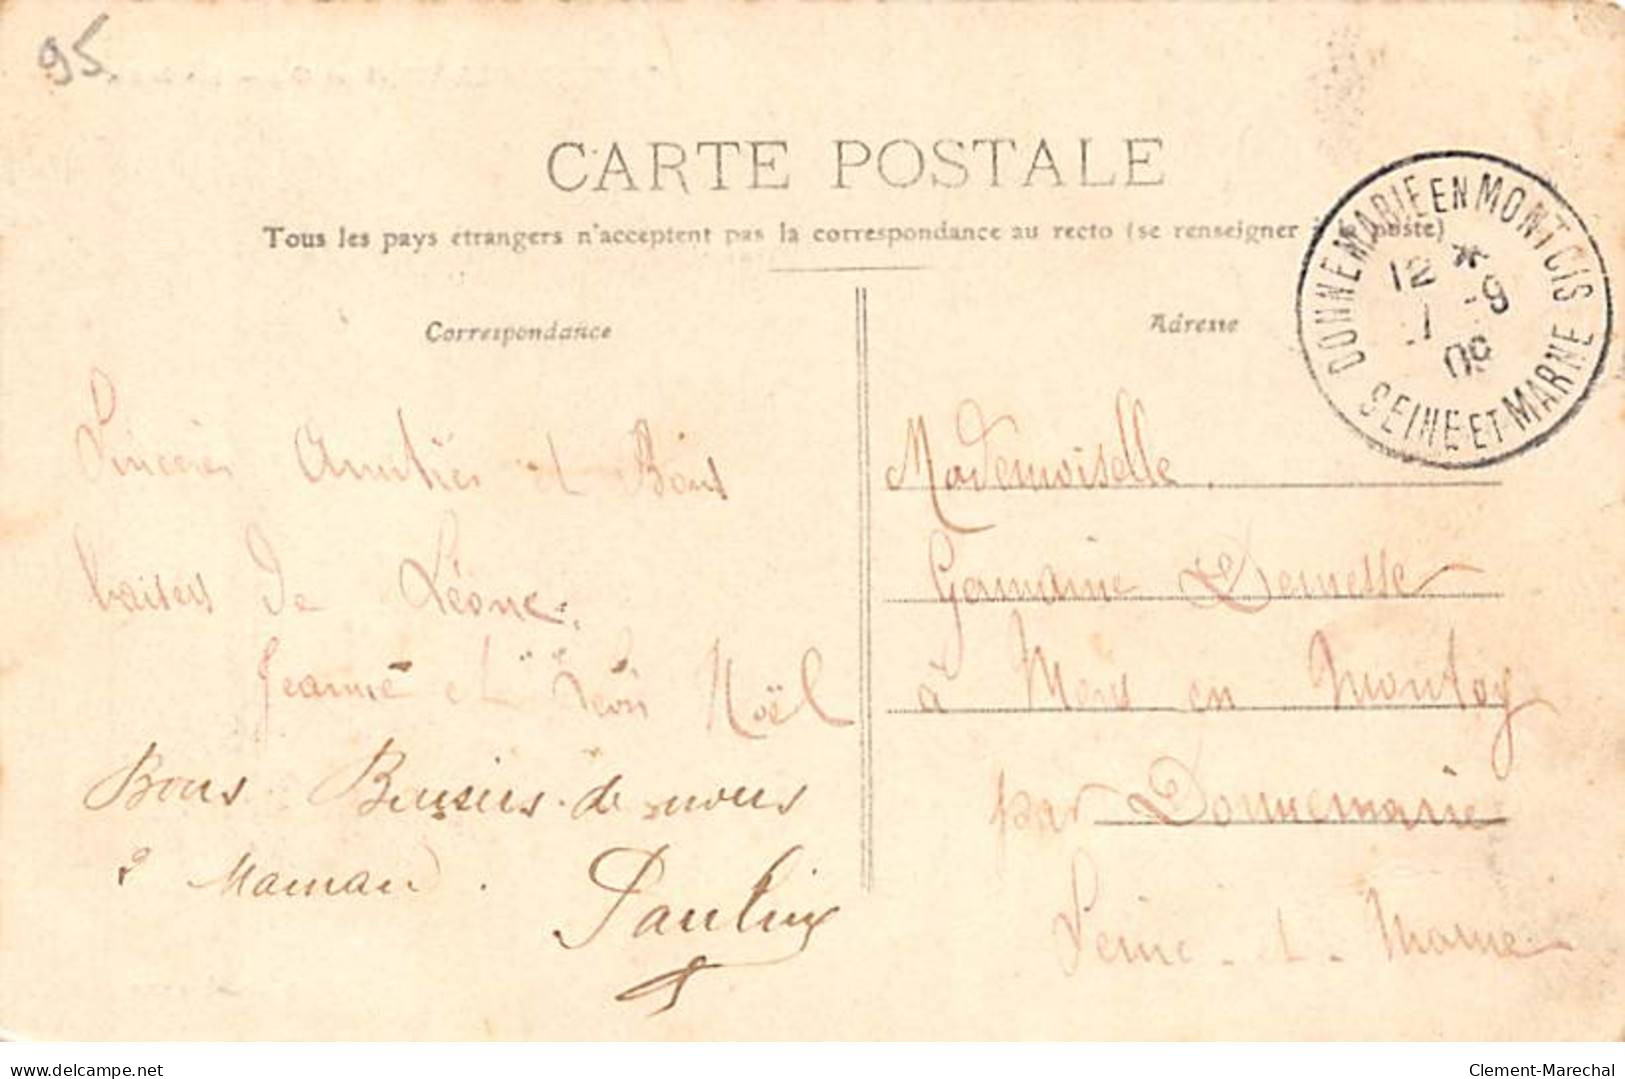 95
CARTE POSTALE
Tous les pays étrangers n'acceptent pas la correspondance au recto (se renseigner à la poste)
Correspondance
Adresse
DONNEMARIE EN MONTOIS
12 *
1 -9
09
SEINE ET MARNE
Sincères Amitiés et Bons
baisers de Léone.
Jeanne et Léon Noël
Bons Baisers de nous
2 Maman.
Pauline
Mademoiselle
Germaine
à Mons en Montoy
par Donnemarie
Seine-et-Marne
delcampe.net
Clement-Marechal